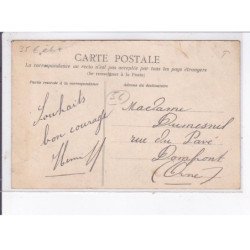 CARTE POSTALE
La correspondance au recto n'est pas acceptée par tous les pays étrangers
(Se renseigner à la Poste)
Partie réservée à la correspondance
Adresse du destinataire
Souhaits
bon courage
Madame
Dumesnil
rue du Pavé
Domfront
(Orne)